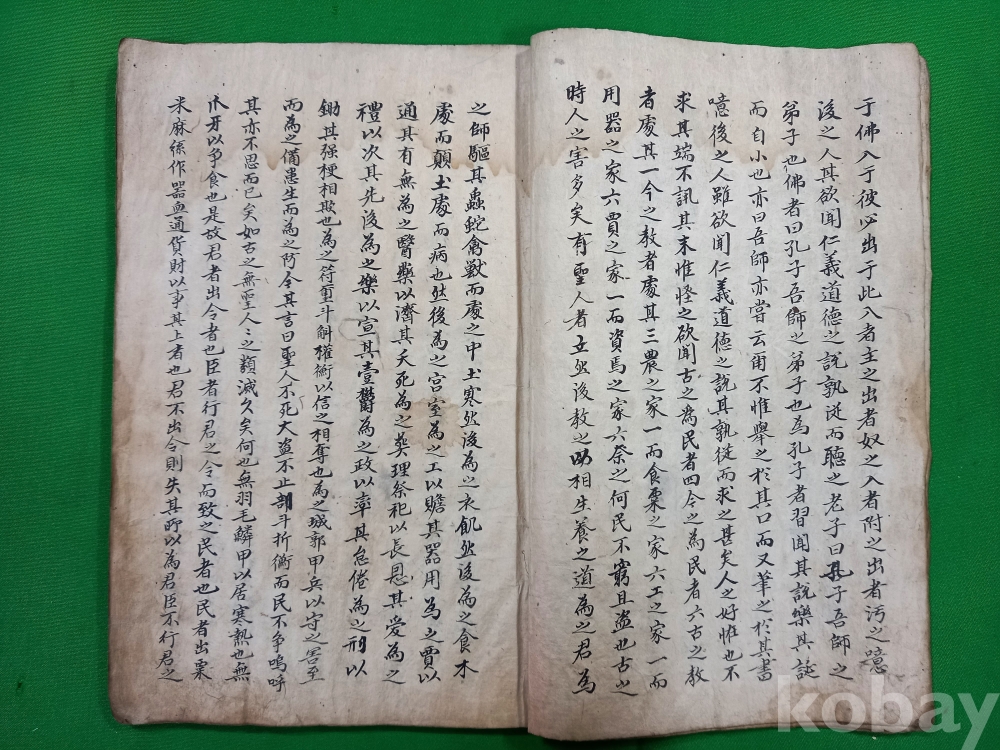 于佛入于彼必出于此入者主之出者奴之入者附之出者汚之噫
後之人其欲聞仁義道德之說孰從而聽之老子曰孔子吾師之
弟子也佛者曰孔子吾師之弟子也為孔子者習聞其說樂其誕
而自小也亦曰吾師亦嘗云爾不惟舉之於其口而又筆之於其書
噫後之人雖欲聞仁義道德之說其孰從而求之甚矣人之好恠也不
求其端不訊其末惟怪之欲聞古之為民者四今之為民者六古之教
者處其一今之教者處其三農之家一而食粟之家六工之家一而
用器之家六賈之家一而資焉之家六奈之何民不窮且盜也古之
時人之害多矣有聖人者立然後教之以相生養之道為之君為
之師驅其蟲蛇禽獸而處之中土寒然後為之衣飢然後為之食木
處而顛土處而病也然後為之宮室為之工以贍其器用為之賈以
通其有無為之醫藥以濟其夭死為之葬埋祭祀以長恩其愛為之
禮以次其先後為之樂以宣其壹鬱為之政以率其怠倦為之刑以
鋤其强梗相欺也為之符璽斗斛權衡以信之相奪也為之城郭甲兵以守之害至
而為之備患生而為之防今其言曰聖人不死大盜不止剖斗折衡而民不爭嗚呼
其亦不思而已矣如古之無聖人人之類滅久矣何也無羽毛鱗甲以居寒熱也無
爪牙以爭食也是故君者出令者也臣者行君之令而致之民者也民者出粟
米麻絲作器皿通貨財以事其上者也君不出令則失其所以為君臣不行君之
kobay